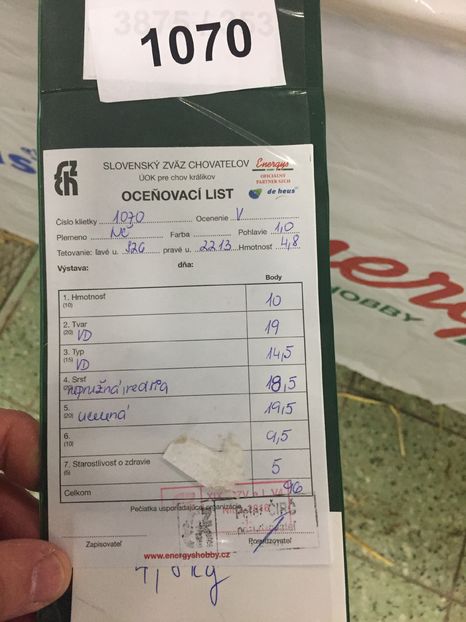 1070
SLOVENSKÝ ZVÄZ CHOVATEĽOV
ÚOK pre chov králikov
Energys
OFICIÁLNY
PARTNER SZCH
OCEŇOVACÍ LIST
de heus
Číslo klietky 1070 Ocenenie V
Plemeno Farba Pohlavie 1,0
Tetovanie: ľavé u. S26 pravé u. 2213 Hmotnosť 4,8
Výstava: dňa:
Body
1. Hmotnosť
(10)
10
2. Tvar
(20) VD
19
3. Typ
(15) VD
14,5
4. Srsť
nepružná, redšia
18,5
5.
(20) ucelená
19,5
6.
(10)
9,5
7. Starostlivosť o zdravie
(5)
5
Celkom
96
Pečiatka usporiadajúcej organizácie
Peter ČIBO
posudzovateľ
Zapisovateľ
Posudzovateľ
www.energyshobby.cz
HOBBY